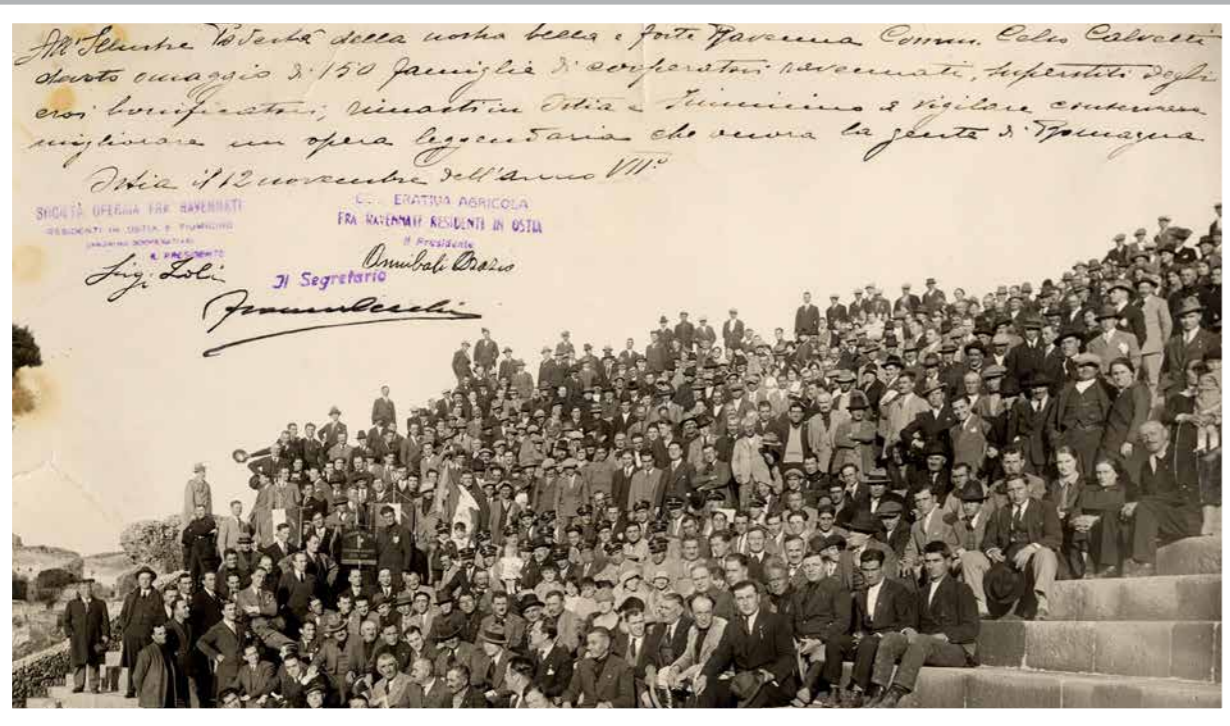 All'Illustre Podestà della nostra bella e forte Ravenna Comm. Celso Calvetti
devoto omaggio di 150 famiglie di cooperatori ravennati, superstiti degli
eroi bonificatori, rimasti in Ostia e Fiumicino a vigilare conservare
migliorare un opera leggendaria che onora la gente di Romagna
Ostia il 12 novembre dell'anno VII°
SOCIETÀ OPERAIA FRA RAVENNATI
RESIDENTI IN OSTIA E FIUMICINO
IL PRESIDENTE
C ERATIVA AGRICOLA
FRA RAVENNATI RESIDENTI IN OSTIA
Il Presidente
Annibali Orazio
Il Segretario